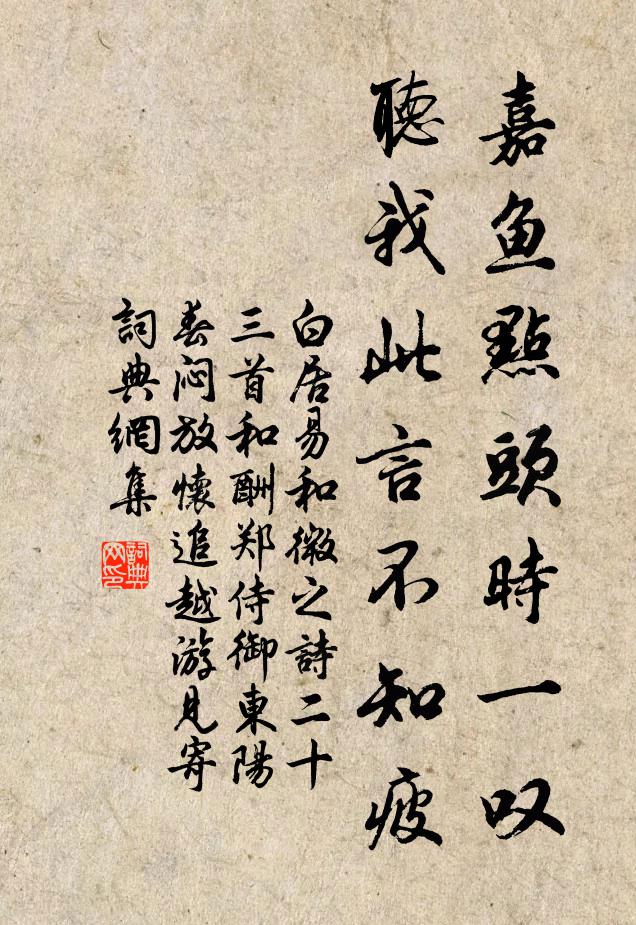 嘉鱼點頭時一叹
聽我此言不知疲
白居易和微之詩二十
三首和酬郑侍御東陽
春闷放懷追越游見寄
詞典網集
詞典
网印